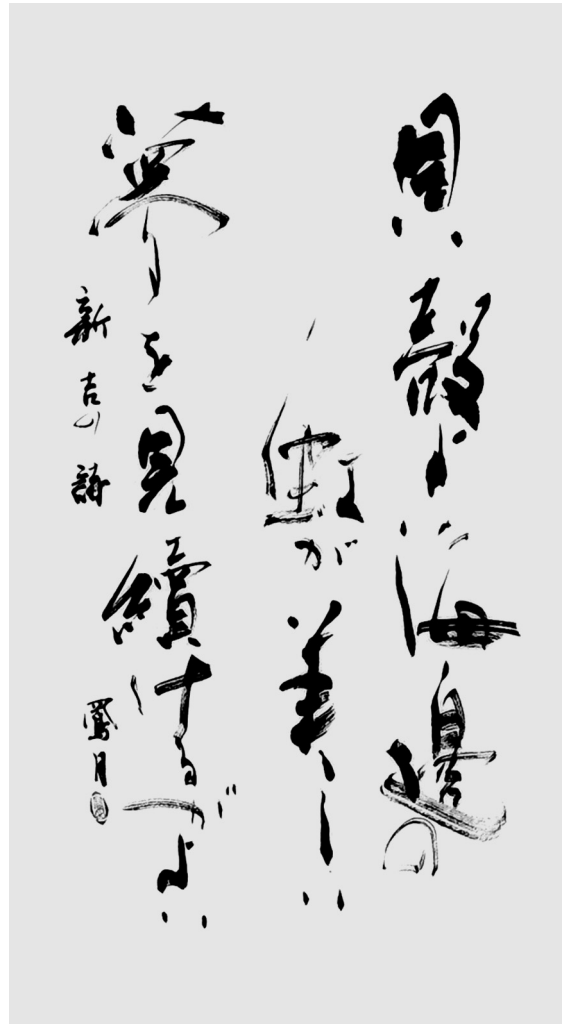 貝殻よ海邊の
虹が美しい
夢を見續けるがよい
新吉の詩
鳳月